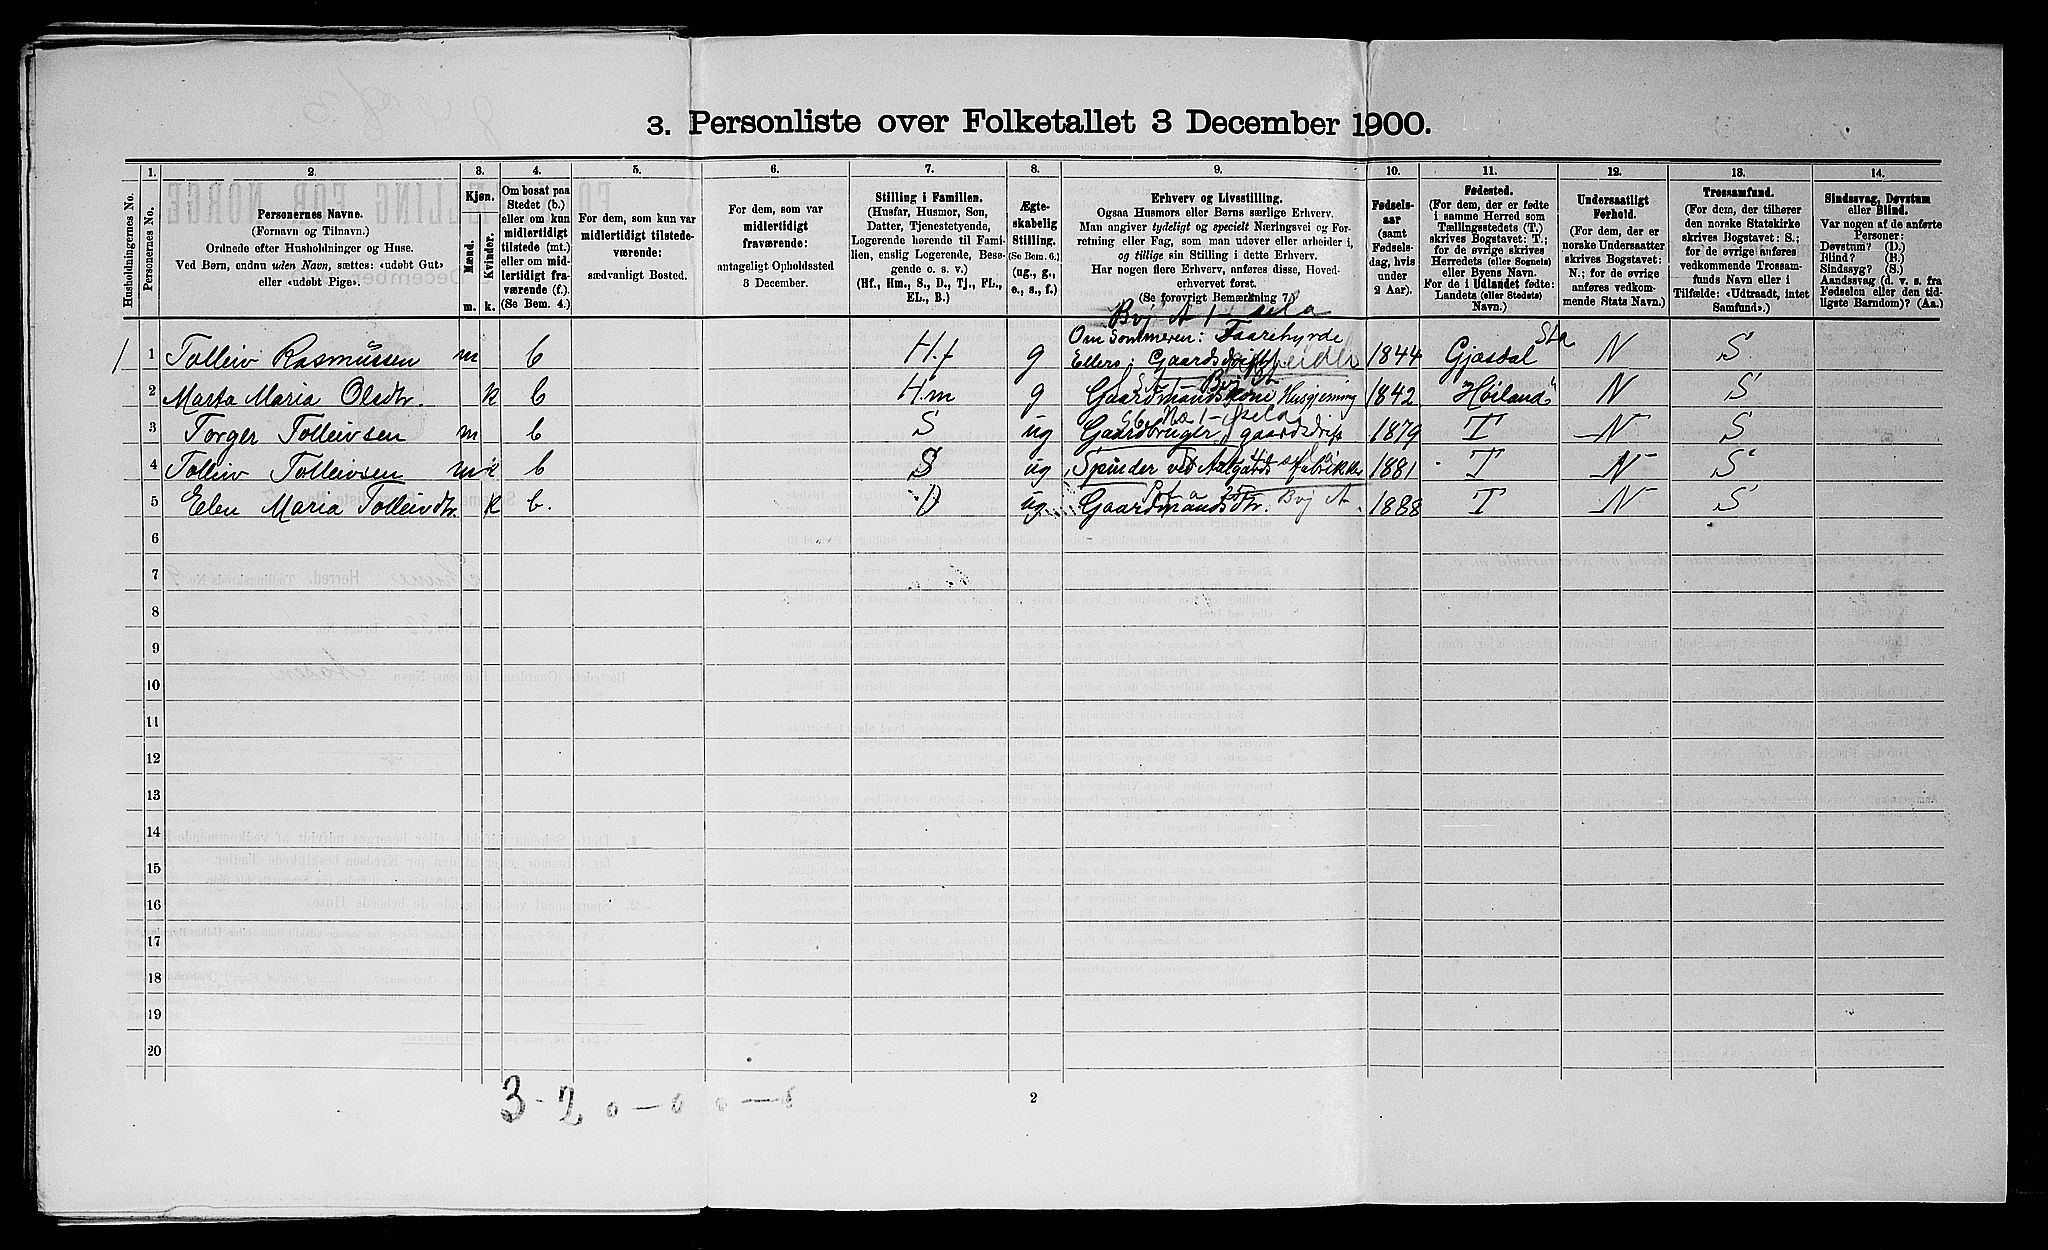 3. Personliste over Folketallet 3 December 1900.
1. 2. 3. 4. 5. 6. 7. 8. 9. 10. 11. 12. 13. 14.
Husholdningernes No.
Personernes No.
Personernes Navne.
(Fornavn og Tilnavn.)
Ordnede efter Husholdninger og Huse.
Ved Børn, endnu uden Navn, sættes: «udøbt Gut»
eller «udøbt Pige».
Kjøn.
Mænd.
Kvinder.
m. k.
Om bosat paa
Stedet (b.)
eller om kun
midlertidigt
tilstede (mt.)
eller om mid-
lertidigt fra-
værende (f.).
(Se Bem. 4.)
For dem, som kun var
midlertidigt tilstede-
værende:
sædvanligt Bosted.
For dem, som var
midlertidigt
fraværende:
antageligt Opholdssted
3 December.
Stilling i Familien.
(Husfar, Husmor, Søn,
Datter, Tjenestetyende,
Logerende hørende til Fami-
lien, enslig Logerende, Besø-
gende o. s. v.)
(Hf., Hm., S., D., Tj., FL.,
EL., B.)
Ægte-
skabelig
Stilling.
(Se Bem. 6.)
(ug., g.,
e., s., f.)
Erhverv og Livsstilling.
Ogsaa Husmors eller Børns særlige Erhverv.
Man angiver tydeligt og specielt Næringsvei og For-
retning eller Fag, som man udøver eller arbeider i,
og tillige sin Stilling i dette Erhverv.
Har nogen flere Erhverv, anføres disse, Hoved-
erhvervet først.
(Se forøvrigt Bemærkning 7.)
Fødsels-
aar
(samt
Fødsels-
dag, hvis
under
2 Aar).
Fødested.
(For dem, der er fødte
i samme Herred som
Tællingsstedets (T.)
skrives Bogstavet: T.;
for de øvrige skrives
Herredets (eller Sognets)
eller Byens Navn.
For de i Udlandet fødte:
Landets (eller Stedets)
Navn.)
Undersaatligt
Forhold.
(For dem, der er
norske Undersaatter
skrives Bogstavet:
N.; for de øvrige
anføres vedkom-
mende Stats Navn.)
Trossamfund.
(For dem, der tilhører
den norske Statskirke
skrives Bogstavet: S.;
for de øvrige anføres
vedkommende Trossam-
funds Navn eller i
Tilfælde: «Udtraadt, intet
Samfund».)
Sindssvag, Døvstum
eller Blind.
Var nogen af de anførte
Personer:
Døvstum? (D.)
Blind? (B.)
Sindssyg? (S.)
Aandssvag (d. v. s. fra
Fødselen eller den tid-
ligste Barndom)? (Aa.)
Om Sommeren: Faarehyrde
1 1 Tolleiv Rasmussen m b Hf g Ellers: Gaardsdrift 1844 Gjæsdal N S
2 Marta Maria Olsdtr. k b Hm g Gaardmandskone Husgjerning 1842 Høiland N S
3 Torger Tolleivsen m b S ug Gaardbruger, gaardsdrift 1879 T N S
4 Tolleiv Tolleivsen m b S ug Spinder ved Aalgaards fabrikker 1881 T N S
5 Elen Maria Tolleivdtr. k b. D ug Gaardmandsdtr. 1888 T N S
6
7
8
9
10
11
12
13
14
15
16
17
18
19
20
3-2 0-0 0-0
2